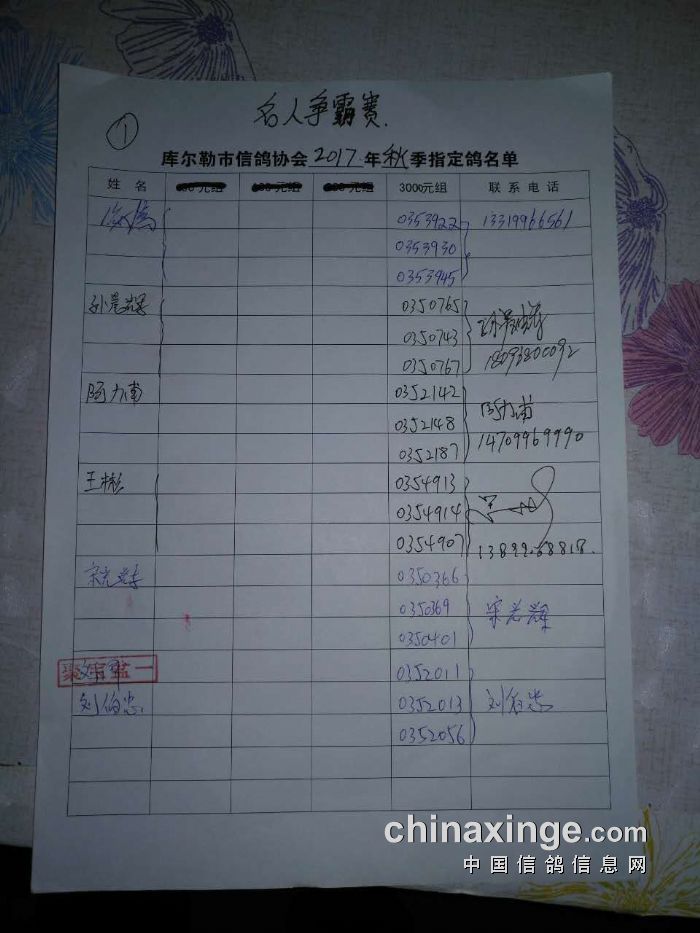 名人争霸赛.
①
库尔勒市信鸽协会2017年秋季指定鸽名单
姓 名 元组 元组 元组 3000元组 联系电话
0353922 13319966561
0353930
0353945
孙 0350765
0350743
0350767 18093800092
阿力甫 0352142
0352148 阿力甫
0352187 14709969990
王彬 0354913
0354914
0354907
0350366
0350369 宋光辉
0350401
0352011
刘伯忠 0352013 刘伯忠
0352056
chinaxinge.com
中国信鸽信息网